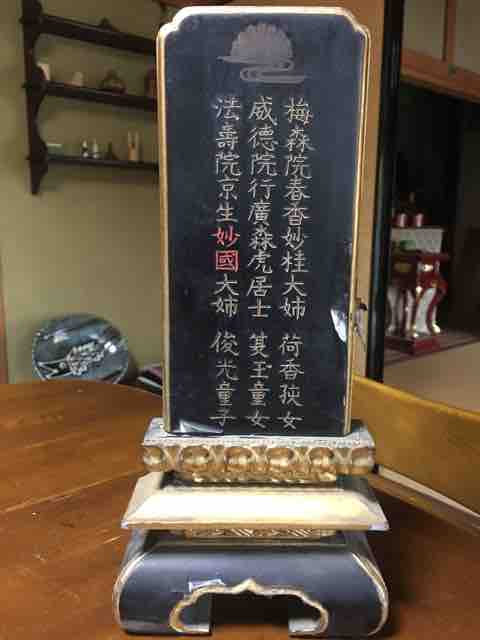 梅森院春香妙桂大姉 荷香荻女
威德院行廣森虎居士 蓂玉童女
法壽院京生妙國大姉 俊光童子